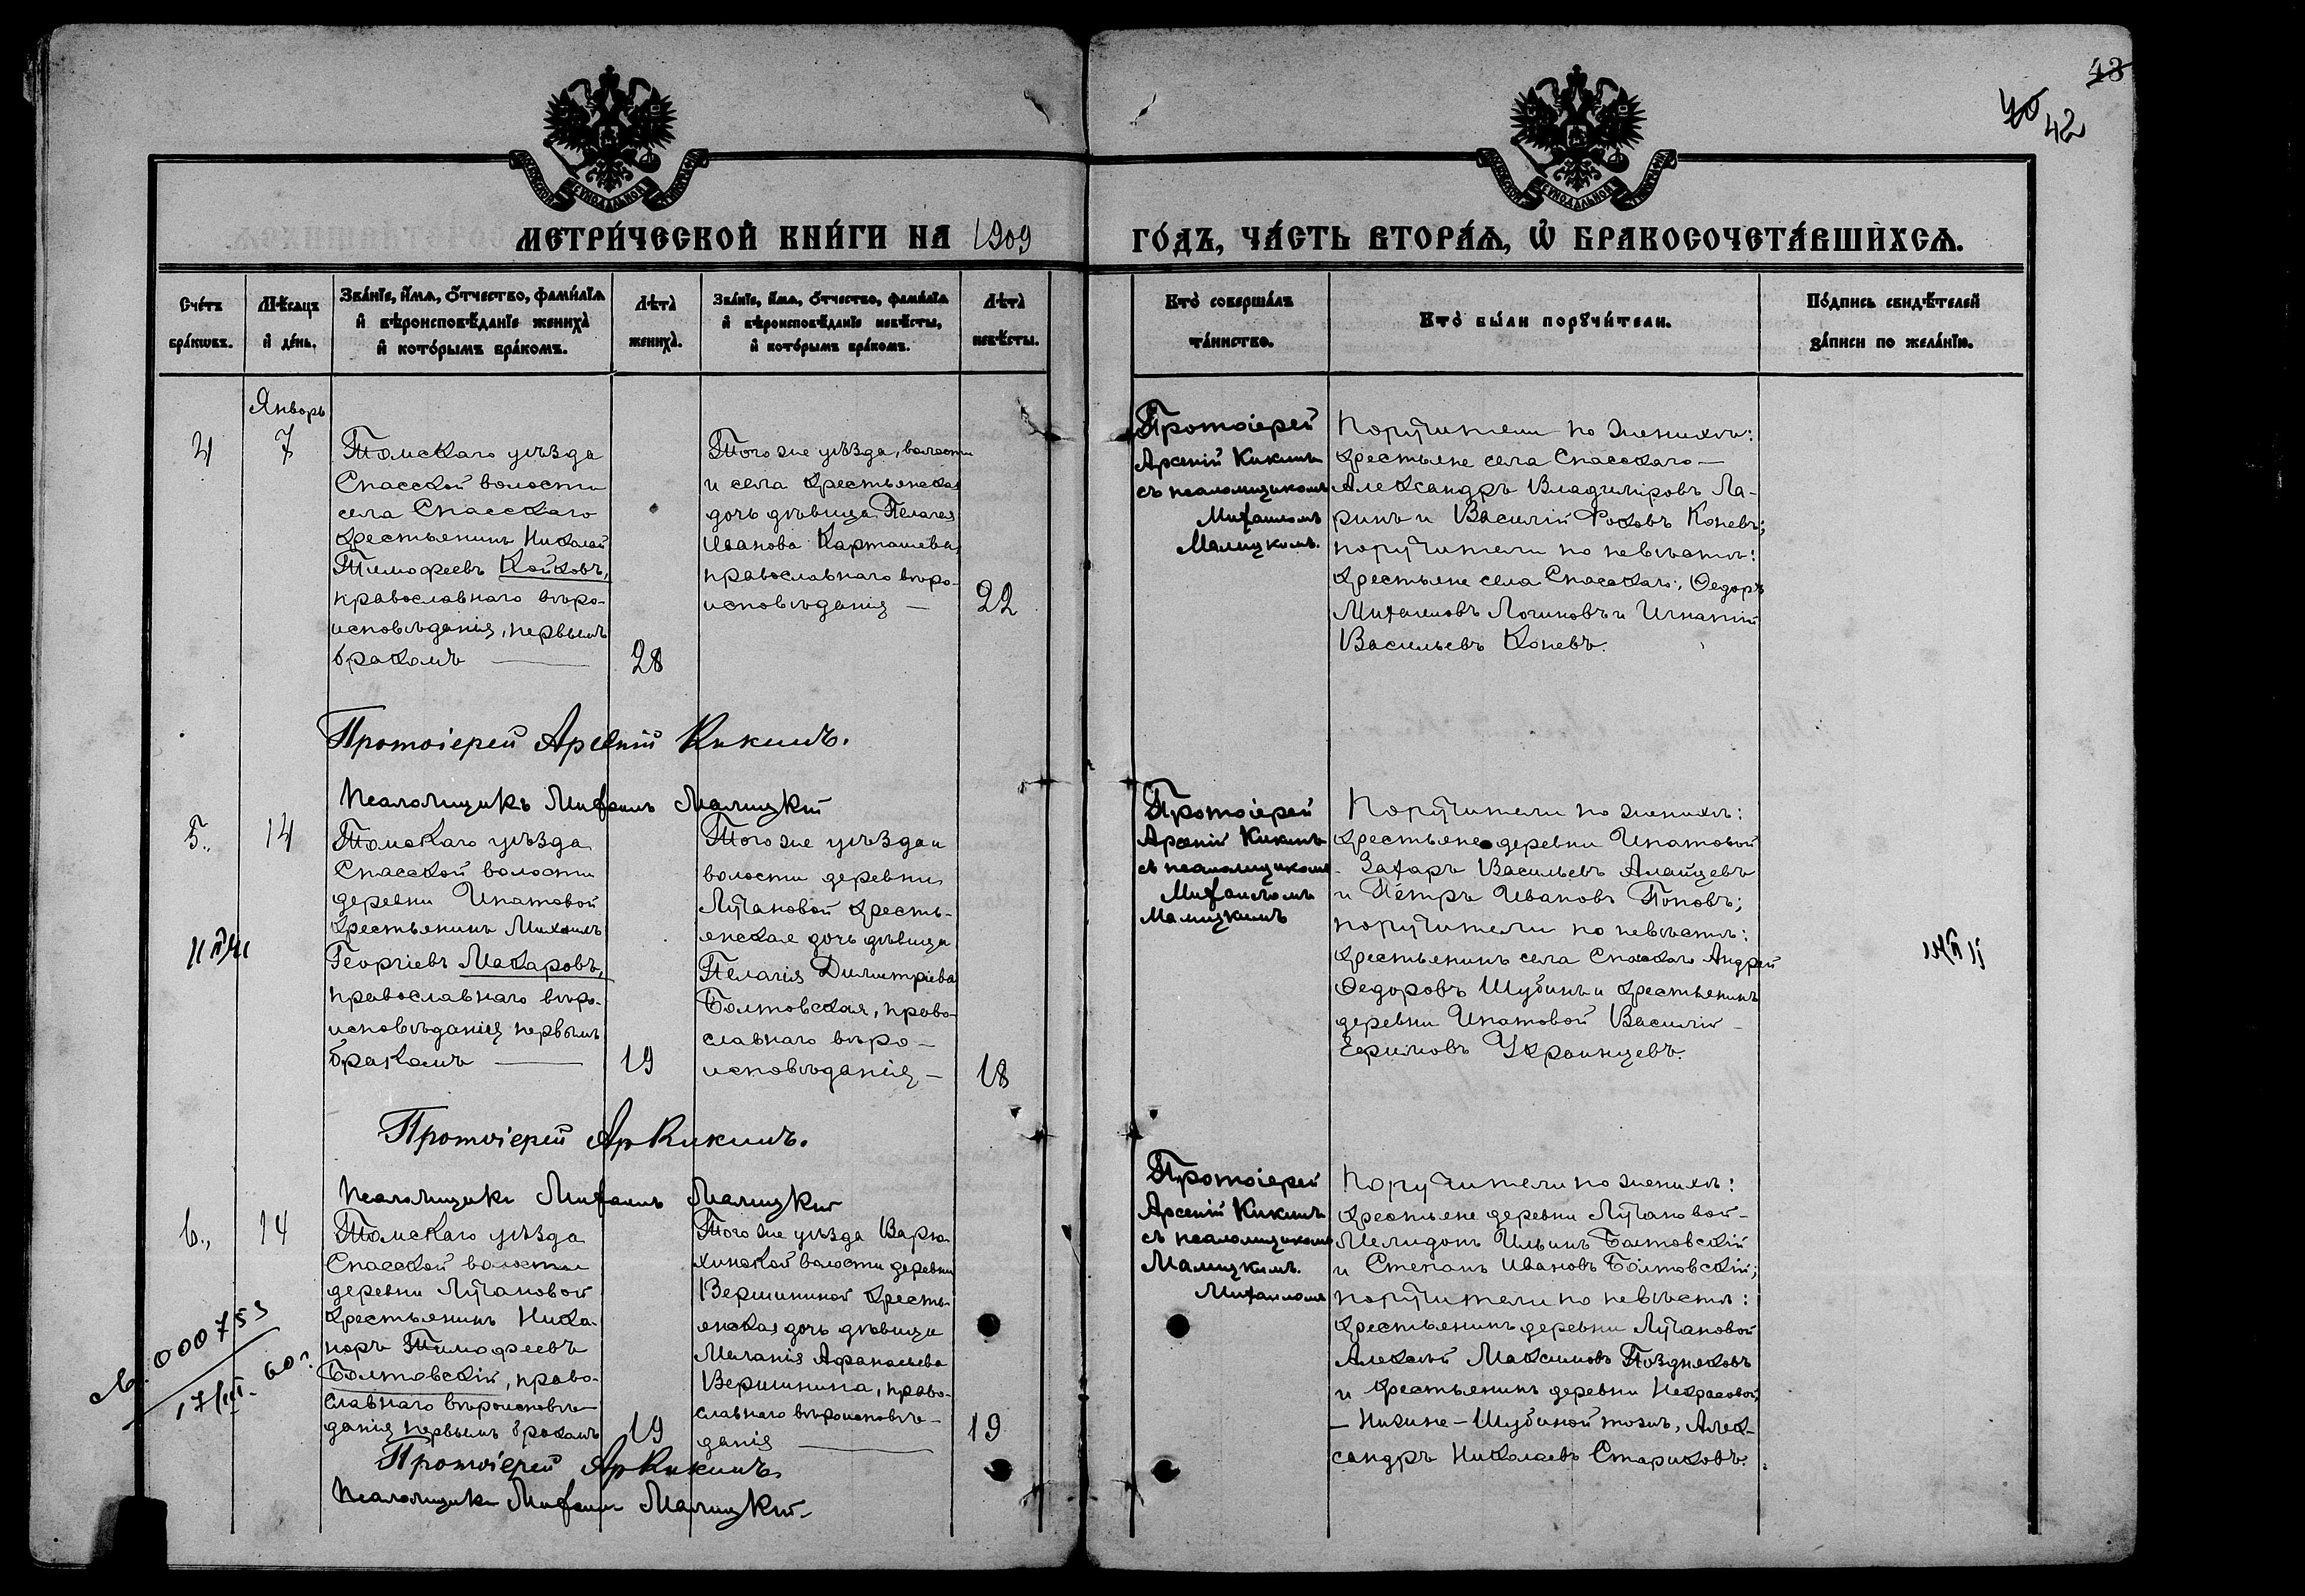 43
40
42
МЕТРИ́ЧЕСКОЙ КНИ́ГИ НА 1909 ГО́ДЪ, ЧА́СТЬ ВТОРА́Ѧ, Ѡ҆ БРАКОСОЧЕТА́ВШИХСѦ.
Сче́тъ бра́кωвъ.
Мѣ́сѧцъ и҆ де́нь.
Зва́нїе, и҆́мѧ, ѻ҆́тчество, фами́лїѧ
и҆ вѣроисповѣ́данїе жениха̀
и҆ кото́рымъ бра́комъ.
Лѣта̀ жениха̀.
Зва́нїе, и҆́мѧ, ѻ҆́тчество, фами́лїѧ
и҆ вѣроисповѣ́данїе невѣ́сты,
и҆ кото́рымъ бра́комъ.
Лѣта̀ невѣ́сты.
Кто̀ соверша́лъ та́инство.
Кто̀ бы́ли порꙋчи́тели.
По́дпись свидѣ́телей за́писи по жела́нїю.
Январь
4
7
Томскаго уѣзда
Спасской волости
села Спасскаго
крестьянинъ Николай
Тимофеевъ Койковъ,
православнаго вѣро-
исповѣданія, первымъ
бракомъ
28
Того же уѣзда, волости
и села крестьянская
дочь дѣвица Пелагея
Иванова Карташева,
православнаго вѣро-
исповѣданія —
22
Протоіерей
Арсеній Кикинъ
съ псаломщикомъ
Михаиломъ
Малицкимъ.
Поручители по женихѣ:
крестьяне села Спасскаго —
Александръ Владиміровъ Ла-
ринъ и Василій Фоковъ Коневъ;
поручители по невѣстѣ:
крестьяне села Спасскаго: Ѳедоръ
Михаиловъ Логиновъ и Игнатій
Васильевъ Коневъ.
Протоіерей Арсеній Кикинъ.
Псаломщикъ Михаилъ Малицкій
5.
14
Томскаго уѣзда
Спасской волости
деревни Ипатовой
крестьянинъ Михаилъ
Георгіевъ Макаровъ,
православнаго вѣро-
исповѣданія первымъ
бракомъ
19
Того же уѣзда и
волости деревни
Лучановой кресть-
янская дочь дѣвица
Пелагія Димитріева
Болтовская, право-
славнаго вѣро-
исповѣданія —
18
Протоіерей
Арсеній Кикинъ
съ псаломщикомъ
Михаиломъ
Малицкимъ
Поручители по женихѣ:
крестьяне деревни Ипатовой
- Захаръ Васильевъ Алайцевъ
и Петръ Ивановъ Поповъ;
поручители по невѣстѣ:
крестьянинъ села Спасскаго Андрей
Ѳедоровъ Шубинъ и крестьянинъ
деревни Ипатовой Василій -
Ефимовъ Украинцевъ.
Протоіерей Ар Кикинъ.
Псаломщикъ Михаилъ Малицкій
6.
14
Томскаго уѣзда
Спасской волости
деревни Лучановой
крестьянинъ Ника-
норъ Тимофеевъ
Болтовскій, право-
славнаго вѣроисповѣ-
данія первымъ бракомъ
19
000753
17/III. 60 г.
Того же уѣзда Варю-
хинской волости деревни
Вершининой кресть-
янская дочь дѣвица
Меланія Афанасьева
Вершинина, право-
славнаго вѣроисповѣ-
данія
19
Протоіерей
Арсеній Кикинъ
съ псаломщикомъ
Малицкимъ.
Михаиломъ
Поручители по женихѣ:
крестьяне деревни Лучановой -
Мелидонъ Ильинъ Болтовскій
и Степанъ Ивановъ Болтовскій;
поручители по невѣстѣ:
крестьянинъ деревни Лучановой
Алексѣй Максимовъ Поздняковъ
и крестьянинъ деревни Некрасовой,
- Шубиной тожъ, Алек-
сандръ Николаевъ Стариковъ.
Протоіерей Ар Кикинъ.
Псаломщикъ Михаилъ Малицкій.